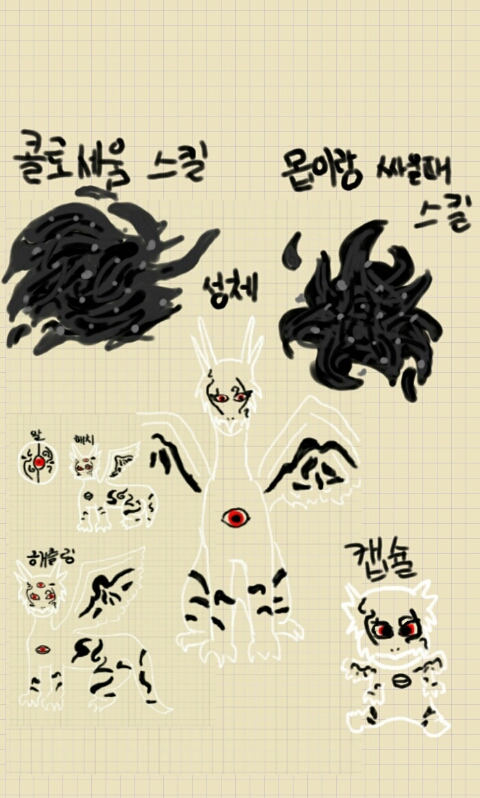 콜로세움 스킬
몹이랑 싸울때
스킬
성체
알
해치
해츨링
캡슐